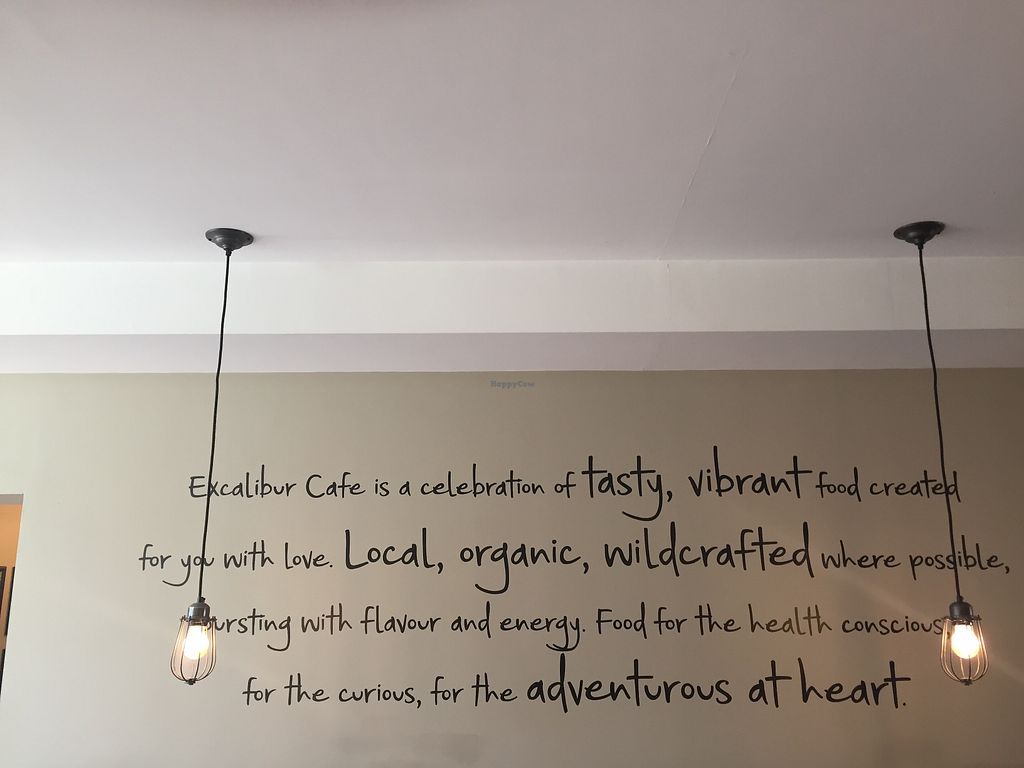 HappyCow
Excalibur Cafe is a celebration of tasty, vibrant food created
for you with love. Local, organic, wildcrafted where possible,
bursting with flavour and energy. Food for the health conscious
for the curious, for the adventurous at heart.